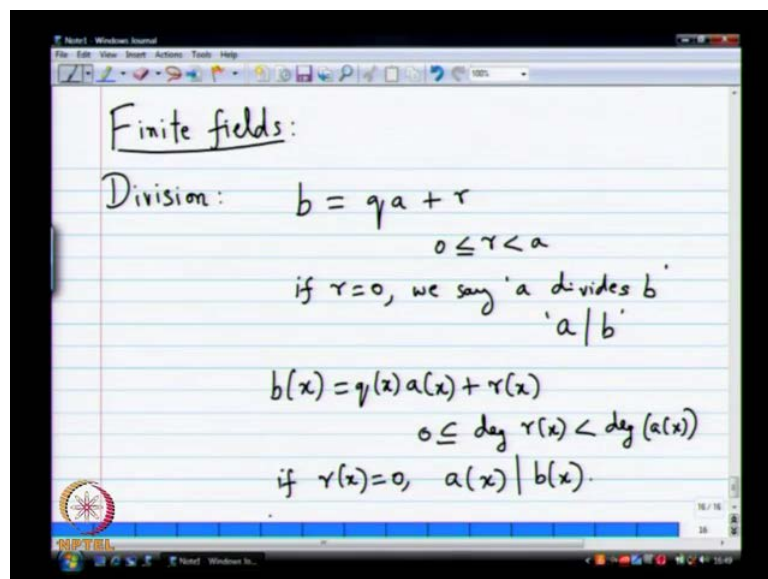 Note1 - Windows Journal
File Edit View Insert Actions Tools Help
100%
Finite fields:
Division: b = qa + r
0 ≤ r < a
if r=0, we say 'a divides b'
'a | b'
b(x) = q(x) a(x) + r(x)
0 ≤ deg r(x) < deg (a(x))
if r(x)=0, a(x) | b(x).
16 / 16
16
NPTEL
Note1 - Windows Jo...
16:49